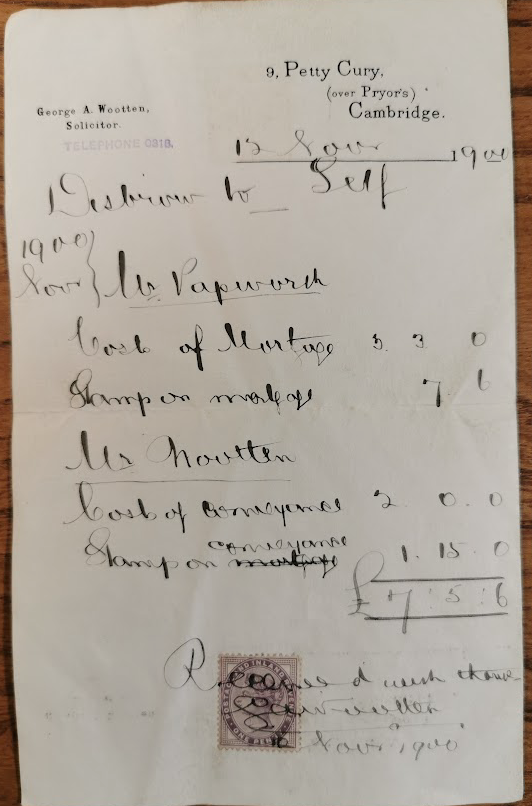 9, Petty Cury,
(over Pryor's)
Cambridge.
George A. Wootten,
Solicitor.
TELEPHONE 0318.
13 Novr 1900
Disbrow to Self
1900
Novr } Mr Papworth
Cost of Mortgage 3. 3 0
Stamp on mortgage 7. 6
Mr Wootten
Cost of conveyance 2 0. 0
conveyance
Stamp on mortgage 1. 15. 0
£7: 5: 6
Received with thanks
GAWootten
Novr 1900